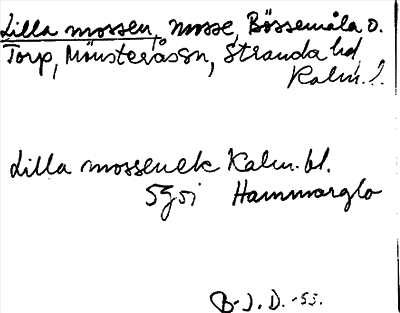 Lilla mossen, mosse, Bössemåla o.
Torp, Mönsterås sn, Stranda hd,
Kalm. l.
Lilla mossen ek Kalm. bl.
5gsi Hammarglo
B-J. D. -53.